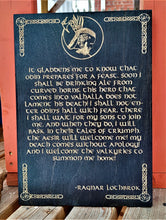 It gladdens me to know that
Odin prepares for a feast. Soon I
shall be drinking ale from
curved horns. This hero that
comes into Valhalla does not
lament his death! I shall not en-
ter Odins hall with fear. There
I shall wait for my sons to join
me. And when they do, I will
bask in their tales of triumph.
The Aesir will welcome me! My
death comes without apology!
And I welcome the Valkyries to
summon me home!
-Ragnar Lothbrok